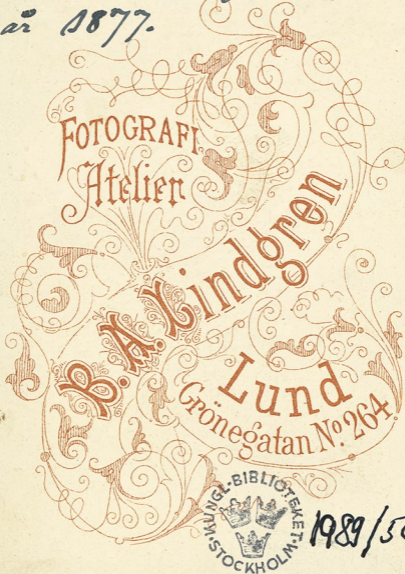 år 1877.
FOTOGRAFI
Atelier
B. A. Lindgren
Lund
Grönegatan No. 264
KUNGL·BIBLIOTEKET·STOCKHOLM·
1989/5